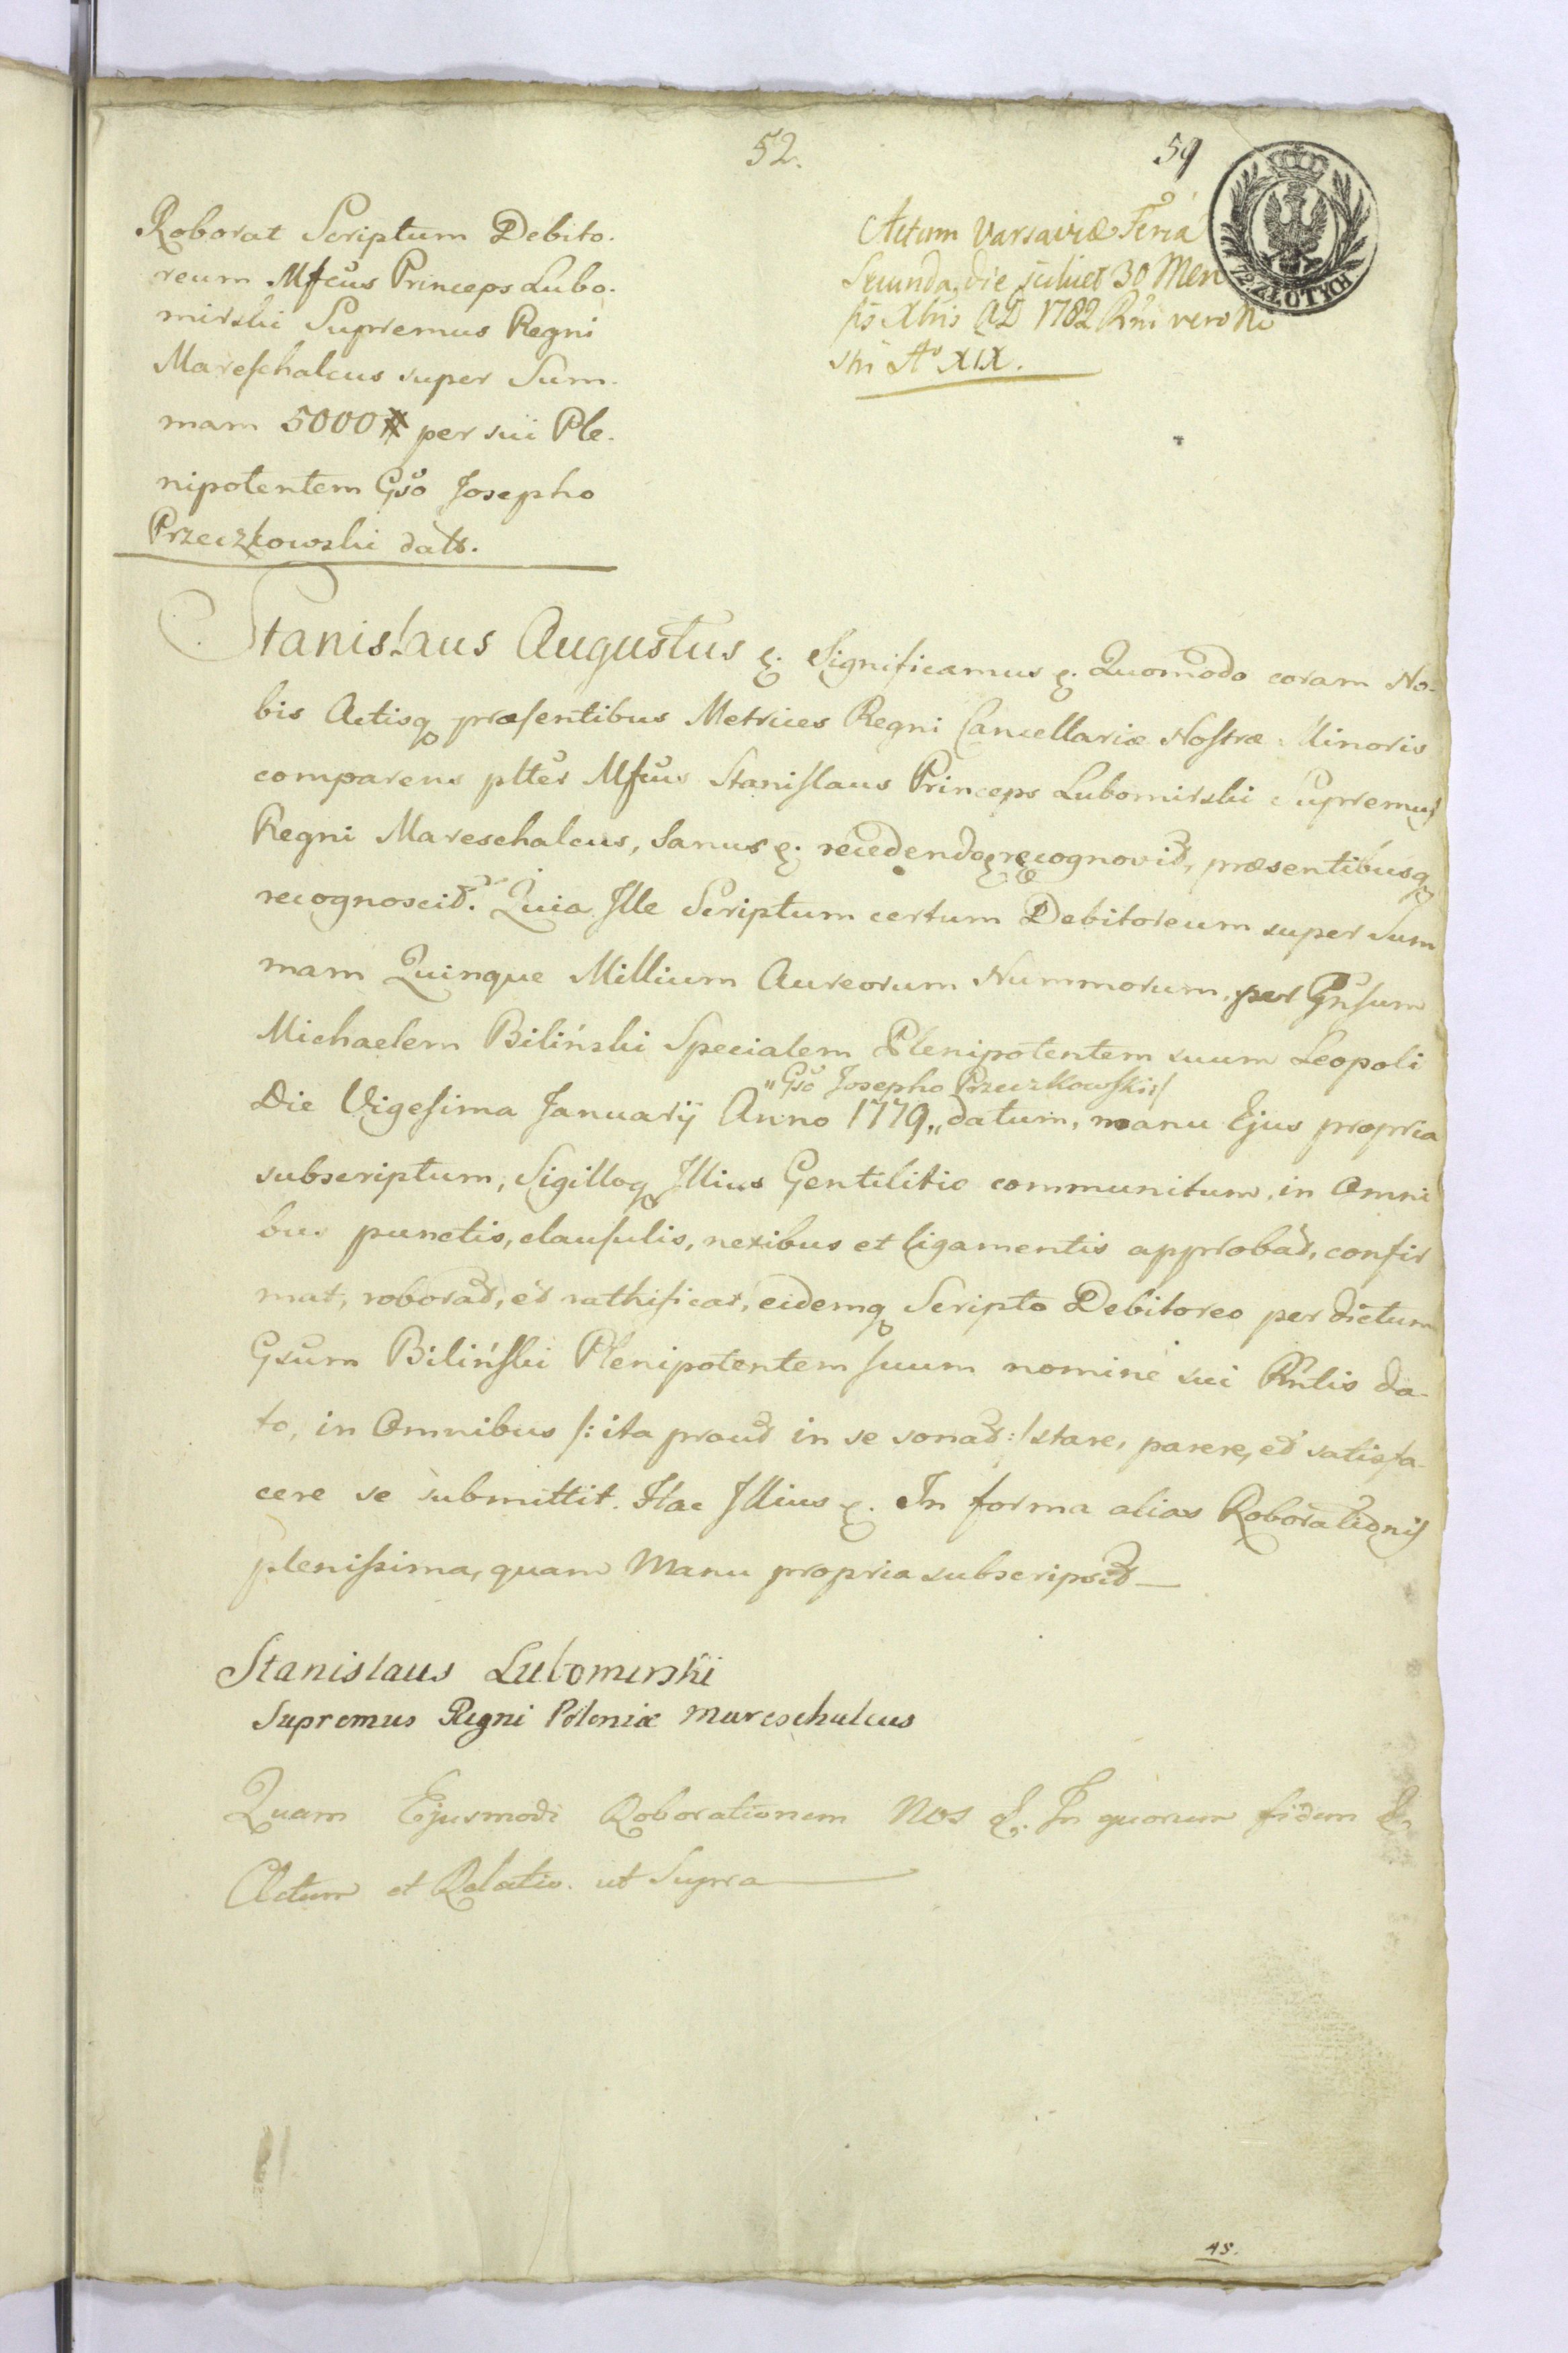 52.
59
Roborat Scriptum Debito.
reum Mfcus Princeps Lubo.
mirski Supremus Regni
Mareſchalcus super Sum.
mam 5000 # per sui Ple.
nipotentem Gso Josepho
Przeczkowski dats.
Actum Varsaviæ Feriá
Secunda, die scilicet 30 Men
sis Xbris AD 1782 Rni vero No
stri Aº XIX.
72. ZŁOTYCH
Stanislaus Augustus &. Significamus &. Quomodo coram No-
bis Actisq præſentibus Metrices Regni Cancellariæ Noſtræ Minoris
comparens plter Mfcus Staniſlaus Princeps Lubomirski Supremus
Regni Mareschalcus, Sanus &. recedendo &. recognovit, præsentibusq
recognoscit. Quia Ille Scriptum certum Debitoreum super Sum
mam Quinque Millium Aureorum Nummorum, per Gnſum
Michaelem Biliński Specialem Plenipotentem suum Leopoli
"Gso Josepho Przeczkowſki"
Die Vigeſima Januarij Anno 1779 „ datum, manu Ejus propria
subscriptum, Sigilloq Illius Gentilitio communitum, in Omni
bus punctis, clauſulis, nexibus et ligamentis approbat, confir
mat, roborat, et rathificat, eidemq Scripto Debitoreo per dictum
Gsum Bilińſki Plenipotentem ſuum nomine sui Rntis da-
to, in Omnibus /: ita prout in se sonat :/ stare, parere, et satisfa-
cere se submittit. Hac Illius &. In forma alias Roborationis
pleniſsima, quam Manu propria subscripsit —
Stanislaus Lubomirski
Supremus Regni Poloniæ Mareschalcus
Quam Ejusmodi Roborationem Nos &. In quorum fidem &.
Actum et Relatio. ut Supra